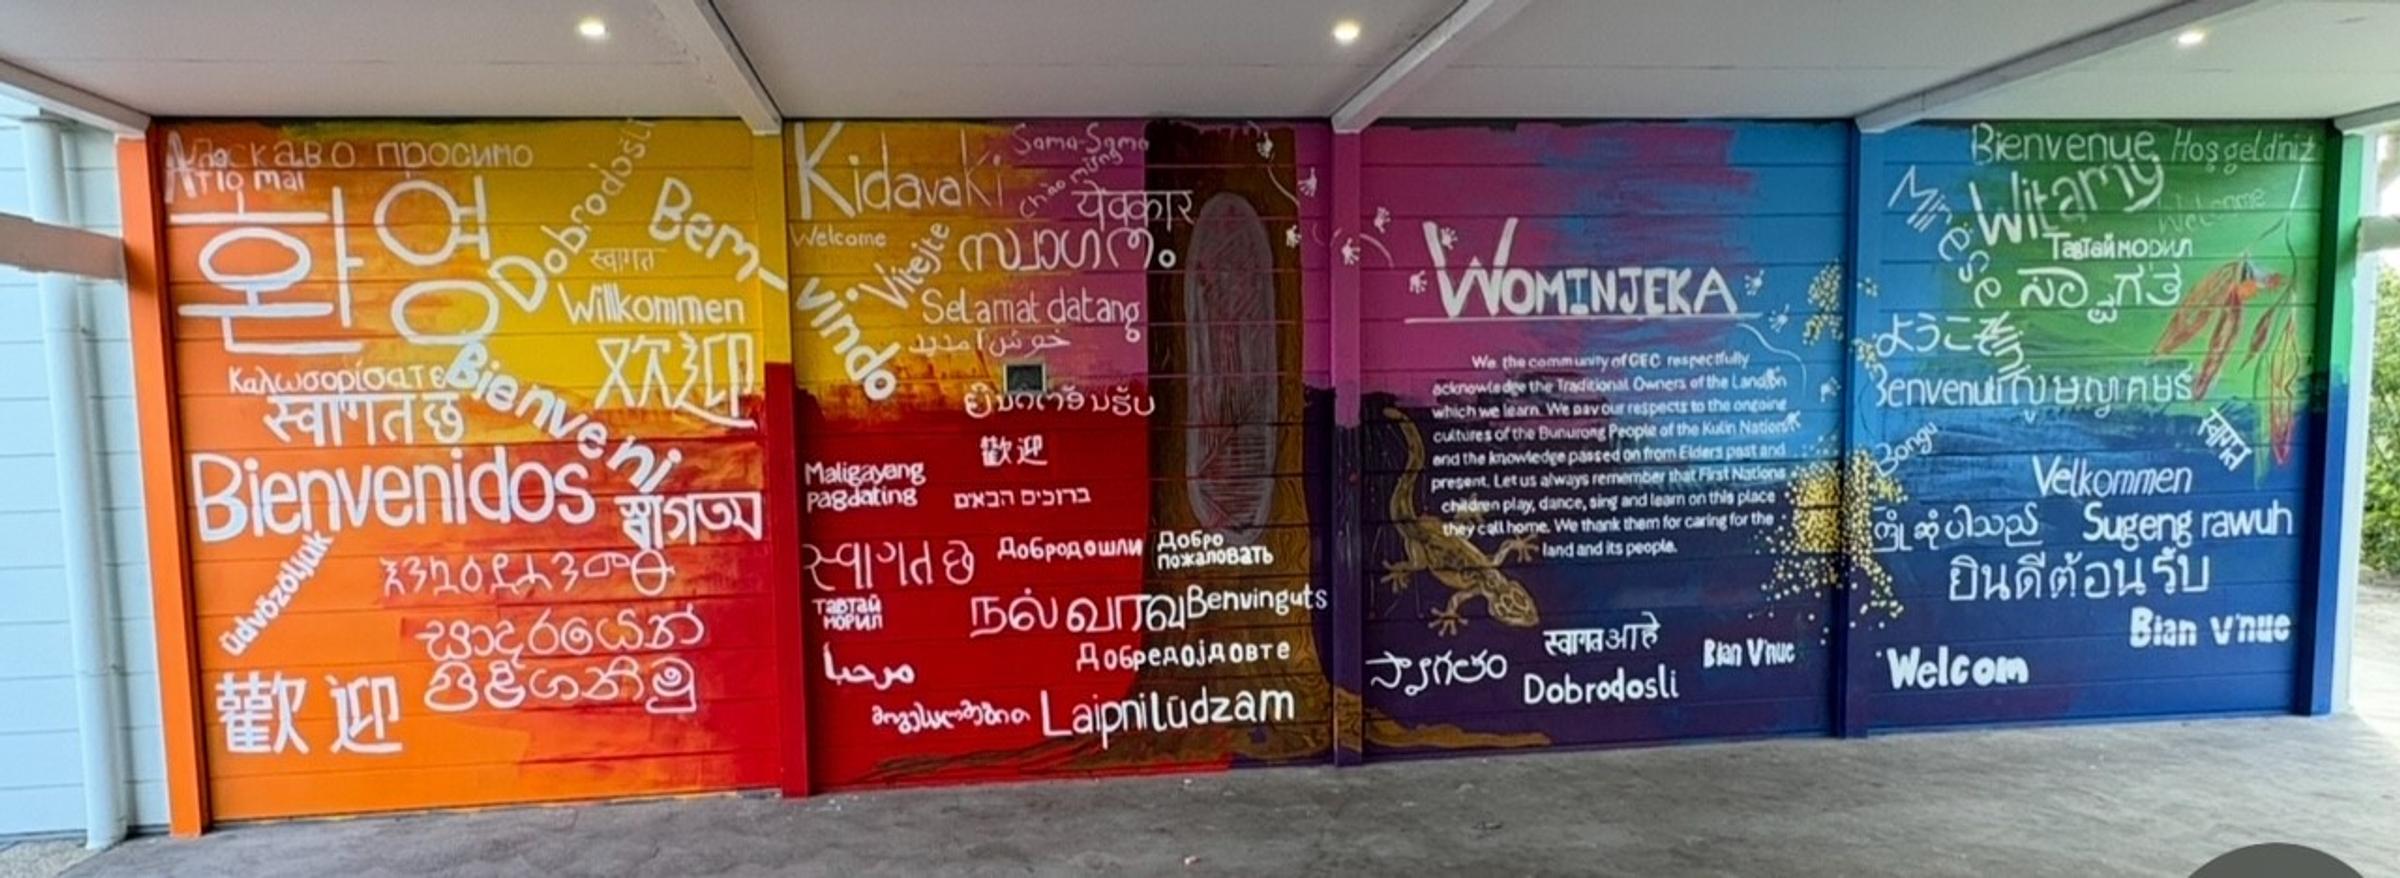 Ласкаво просимо
환영
Dobrodošli
Bem-vindo
स्वागत
Willkommen
欢迎
Καλωσορίσατε
Bienveni
स्वागत छ
Bienvenidos
স্বাগতম
üdvözöljük
እንኳን ደህና መጡ
සාදරයෙන්
පිළිගනිමු
歡迎
Kidavaki
Sama-Sama
Chào mừng
येवकार
Welcome
Vítejte
സ്വാഗതം
Selamat datang
خوش آمدید
歡迎
Maligayang
pagdating
ברוכים הבאים
Добродошли
Добро
пожаловать
ТАВТАЙ
МОРИЛ
நல்வரவு
Benvinguts
مرحبا
Добредојдовте
Laipni lūdzam
WOMINJEKA
We the community of GEC respectfully
acknowledge the Traditional Owners of the Land on
which we learn. We pay our respects to the ongoing
cultures of the Bunurong People of the Kulin Nations
and the knowledge passed on from Elders past and
present. Let us always remember that First Nations
children play, dance, sing and learn on this place
they call home. We thank them for caring for the
land and its people.
स्वागत आहे
Bian V'nue
Dobrodosli
Bienvenue
Hoş geldiniz
Witamy
Mirësevini
Welcome
Тавтай морил
ಸ್ವಾಗತ
ようこそ
Benvenuti
स्वागत
Velkommen
ကြိုဆိုပါသည်
Sugeng rawuh
ยินดีต้อนรับ
Bian V'nue
Welcom